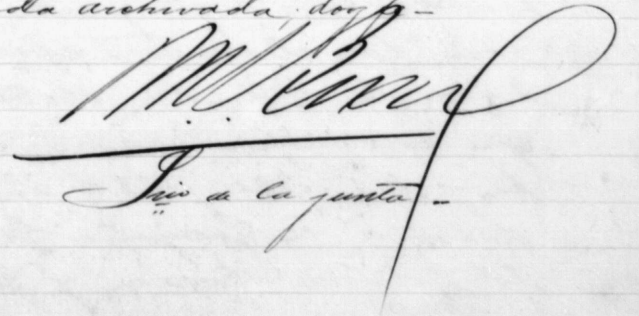 da archivada, doy fe
Srio de la junta